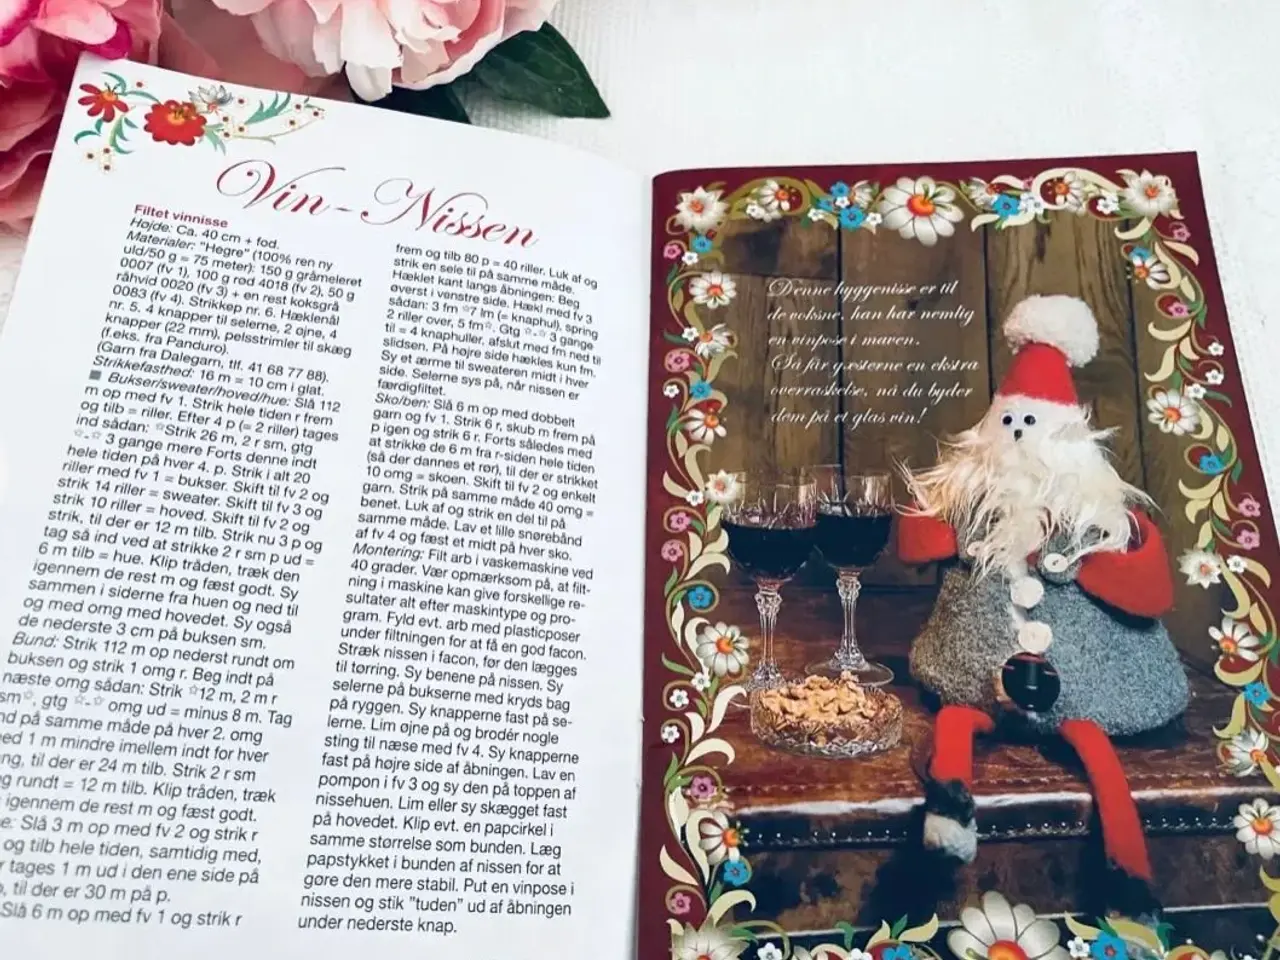 Vin-Nissen
Filtet vinnisse
Højde: Ca. 40 cm + fod.
Materialer: "Hegre" (100% ren ny
uld/50 g = 75 meter): 150 g gråmeleret
0007 (fv 1), 100 g rød 4018 (fv 2), 50 g
råhvid 0020 (fv 3) + en rest koksgrå
0083 (fv 4). Strikkep nr. 6. Hæklenål
nr. 5. 4 knapper til selerne, 2 øjne, 4
knapper (22 mm), pelsstrimler til skæg
(f.eks. fra Panduro).
(Garn fra Dalegarn, tlf. 41 68 77 88).
Strikkefasthed: 16 m = 10 cm i glat.
■ Bukser/sweater/hoved/hue: Slå 112
m op med fv 1. Strik hele tiden r frem
og tilb = riller. Efter 4 p (= 2 riller) tages
ind sådan: ☆Strik 26 m, 2 r sm, gtg
☆-☆ 3 gange mere Forts denne indt
hele tiden på hver 4. p. Strik i alt 20
riller med fv 1 = bukser. Skift til fv 2 og
strik 14 riller = sweater. Skift til fv 3 og
strik 10 riller = hoved. Skift til fv 2 og
strik, til der er 12 m tilb. Strik nu 3 p og
tag så ind ved at strikke 2 r sm p ud =
6 m tilb = hue. Klip tråden, træk den
igennem de rest m og fæst godt. Sy
sammen i siderne fra huen og ned til
og med omg med hovedet. Sy også
de nederste 3 cm på buksen sm.
Bund: Strik 112 m op nederst rundt om
buksen og strik 1 omg r. Beg indt på
næste omg sådan: Strik ☆12 m, 2 m r
sm☆, gtg ☆-☆ omg ud = minus 8 m. Tag
nd på samme måde på hver 2. omg
ed 1 m mindre imellem indt for hver
ng, til der er 24 m tilb. Strik 2 r sm
g rundt = 12 m tilb. Klip tråden, træk
igennem de rest m og fæst godt.
e: Slå 3 m op med fv 2 og strik r
og tilb hele tiden, samtidig med,
r tages 1 m ud i den ene side på
, til der er 30 m på p.
Slå 6 m op med fv 1 og strik r
frem og tilb 80 p = 40 riller. Luk af og
strik en sele til på samme måde.
Hæklet kant langs åbningen: Beg
øverst i venstre side. Hækl med fv 3
sådan: 3 fm ☆7 lm (= knaphul), spring
2 riller over, 5 fm☆. Gtg ☆-☆ 3 gange
til = 4 knaphuller, afslut med fm ned til
slidsen. På højre side hækles kun fm.
Sy et ærme til sweateren midt i hver
side. Selerne sys på, når nissen er
færdigfiltet.
Sko/ben: Slå 6 m op med dobbelt
garn og fv 1. Strik 6 r, skub m frem på
p igen og strik 6 r. Forts således med
at strikke de 6 m fra r-siden hele tiden
(så der dannes et rør), til der er strikket
10 omg = skoen. Skift til fv 2 og enkelt
garn. Strik på samme måde 40 omg =
benet. Luk af og strik en del til på
samme måde. Lav et lille snørebånd
af fv 4 og fæst et midt på hver sko.
Montering: Filt arb i vaskemaskine ved
40 grader. Vær opmærksom på, at filt-
ning i maskine kan give forskellige re-
sultater alt efter maskintype og pro-
gram. Fyld evt. arb med plasticposer
under filtningen for at få en god facon.
Stræk nissen i facon, før den lægges
til tørring. Sy benene på nissen. Sy
selerne på bukserne med kryds bag
på ryggen. Sy knapperne fast på se-
lerne. Lim øjne på og brodér nogle
sting til næse med fv 4. Sy knapperne
fast på højre side af åbningen. Lav en
pompon i fv 3 og sy den på toppen af
nissehuen. Lim eller sy skægget fast
på hovedet. Klip evt. en papcirkel i
samme størrelse som bunden. Læg
papstykket i bunden af nissen for at
gøre den mere stabil. Put en vinpose i
nissen og stik "tuden" ud af åbningen
under nederste knap.
Denne hyggenisse er til
de voksne, han har nemlig
en vinpose i maven.
Så får gæsterne en ekstra
overraskelse, nå du byder
dem på et glas vin!